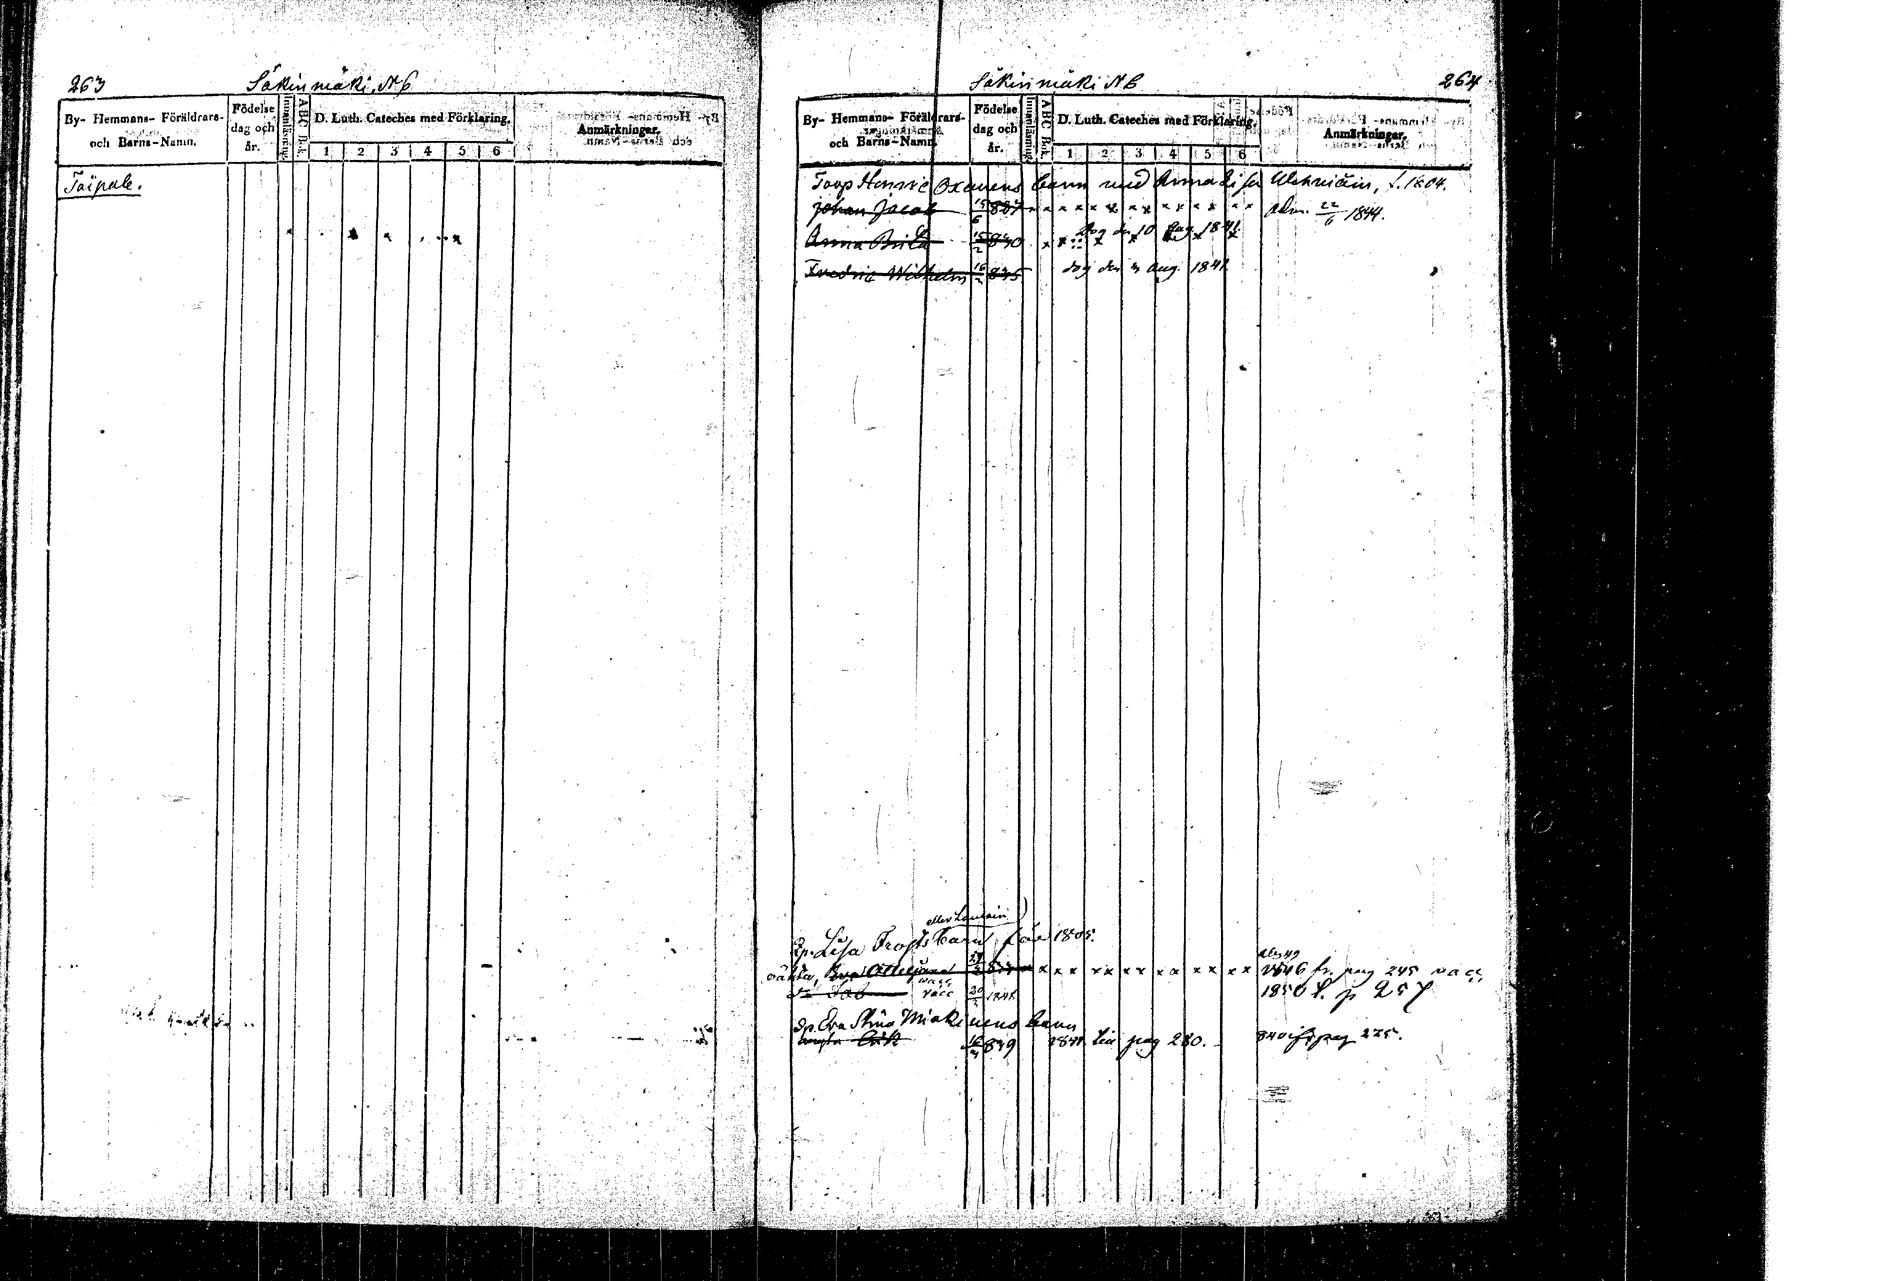 263 Säkinmäki N 6
By- Hemmans- Föräldrars- och Barns-Namn. Födelse dag och år. Innanläsning. ABC Bok. D. Luth. Cateches med Förklaring. 1 2 3 4 5 6 Anmärkningar.
Taipale.
Säkinmäki N 6 264
By- Hemmans- Föräldrars- och Barns-Namn. Födelse dag och år. Innanläsning. ABC Bok. D. Luth. Cateches med Förklaring. 1 2 3 4 5 6 Anmärkningar.
Torp Henric Oxanens barn med Anna Lisa f. 1804.
Johan Jacob 15/6 837 x x x x x x x x x x x x x adm. 22/6 1844.
Anna Brita 15/2 840 Dog den 10 Aug 1841
Fredric Wilhelm 16/2 835 dog den aug. 1841
eller Laurain
Lisa Trogs barn före 1805.
oäkta, x x x x x x x x x x x x 1846 fr. pag 245 vacc
vacc 20/2 1848 1850 t. p 257
Eva Stina Miakinens barn
839 1841 till pag 280. 840 ifr pag 275.